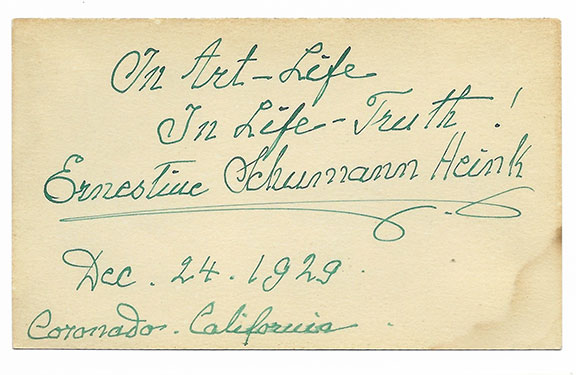 In Art-Life
In Life-Truth!
Ernestine Schumann Heink
Dec. 24. 1929.
Coronado. California.